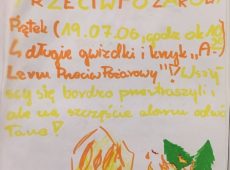 PRZECIWPOŻAROW
Piątek (19.07.06, godz. ok 10
4 długie gwizdki i krzyk „A-
Larm Przeciw Pożarowy"! Wszy
scy się bardzo przestraszyli,
ale na szczęście alarm odwo
łano!